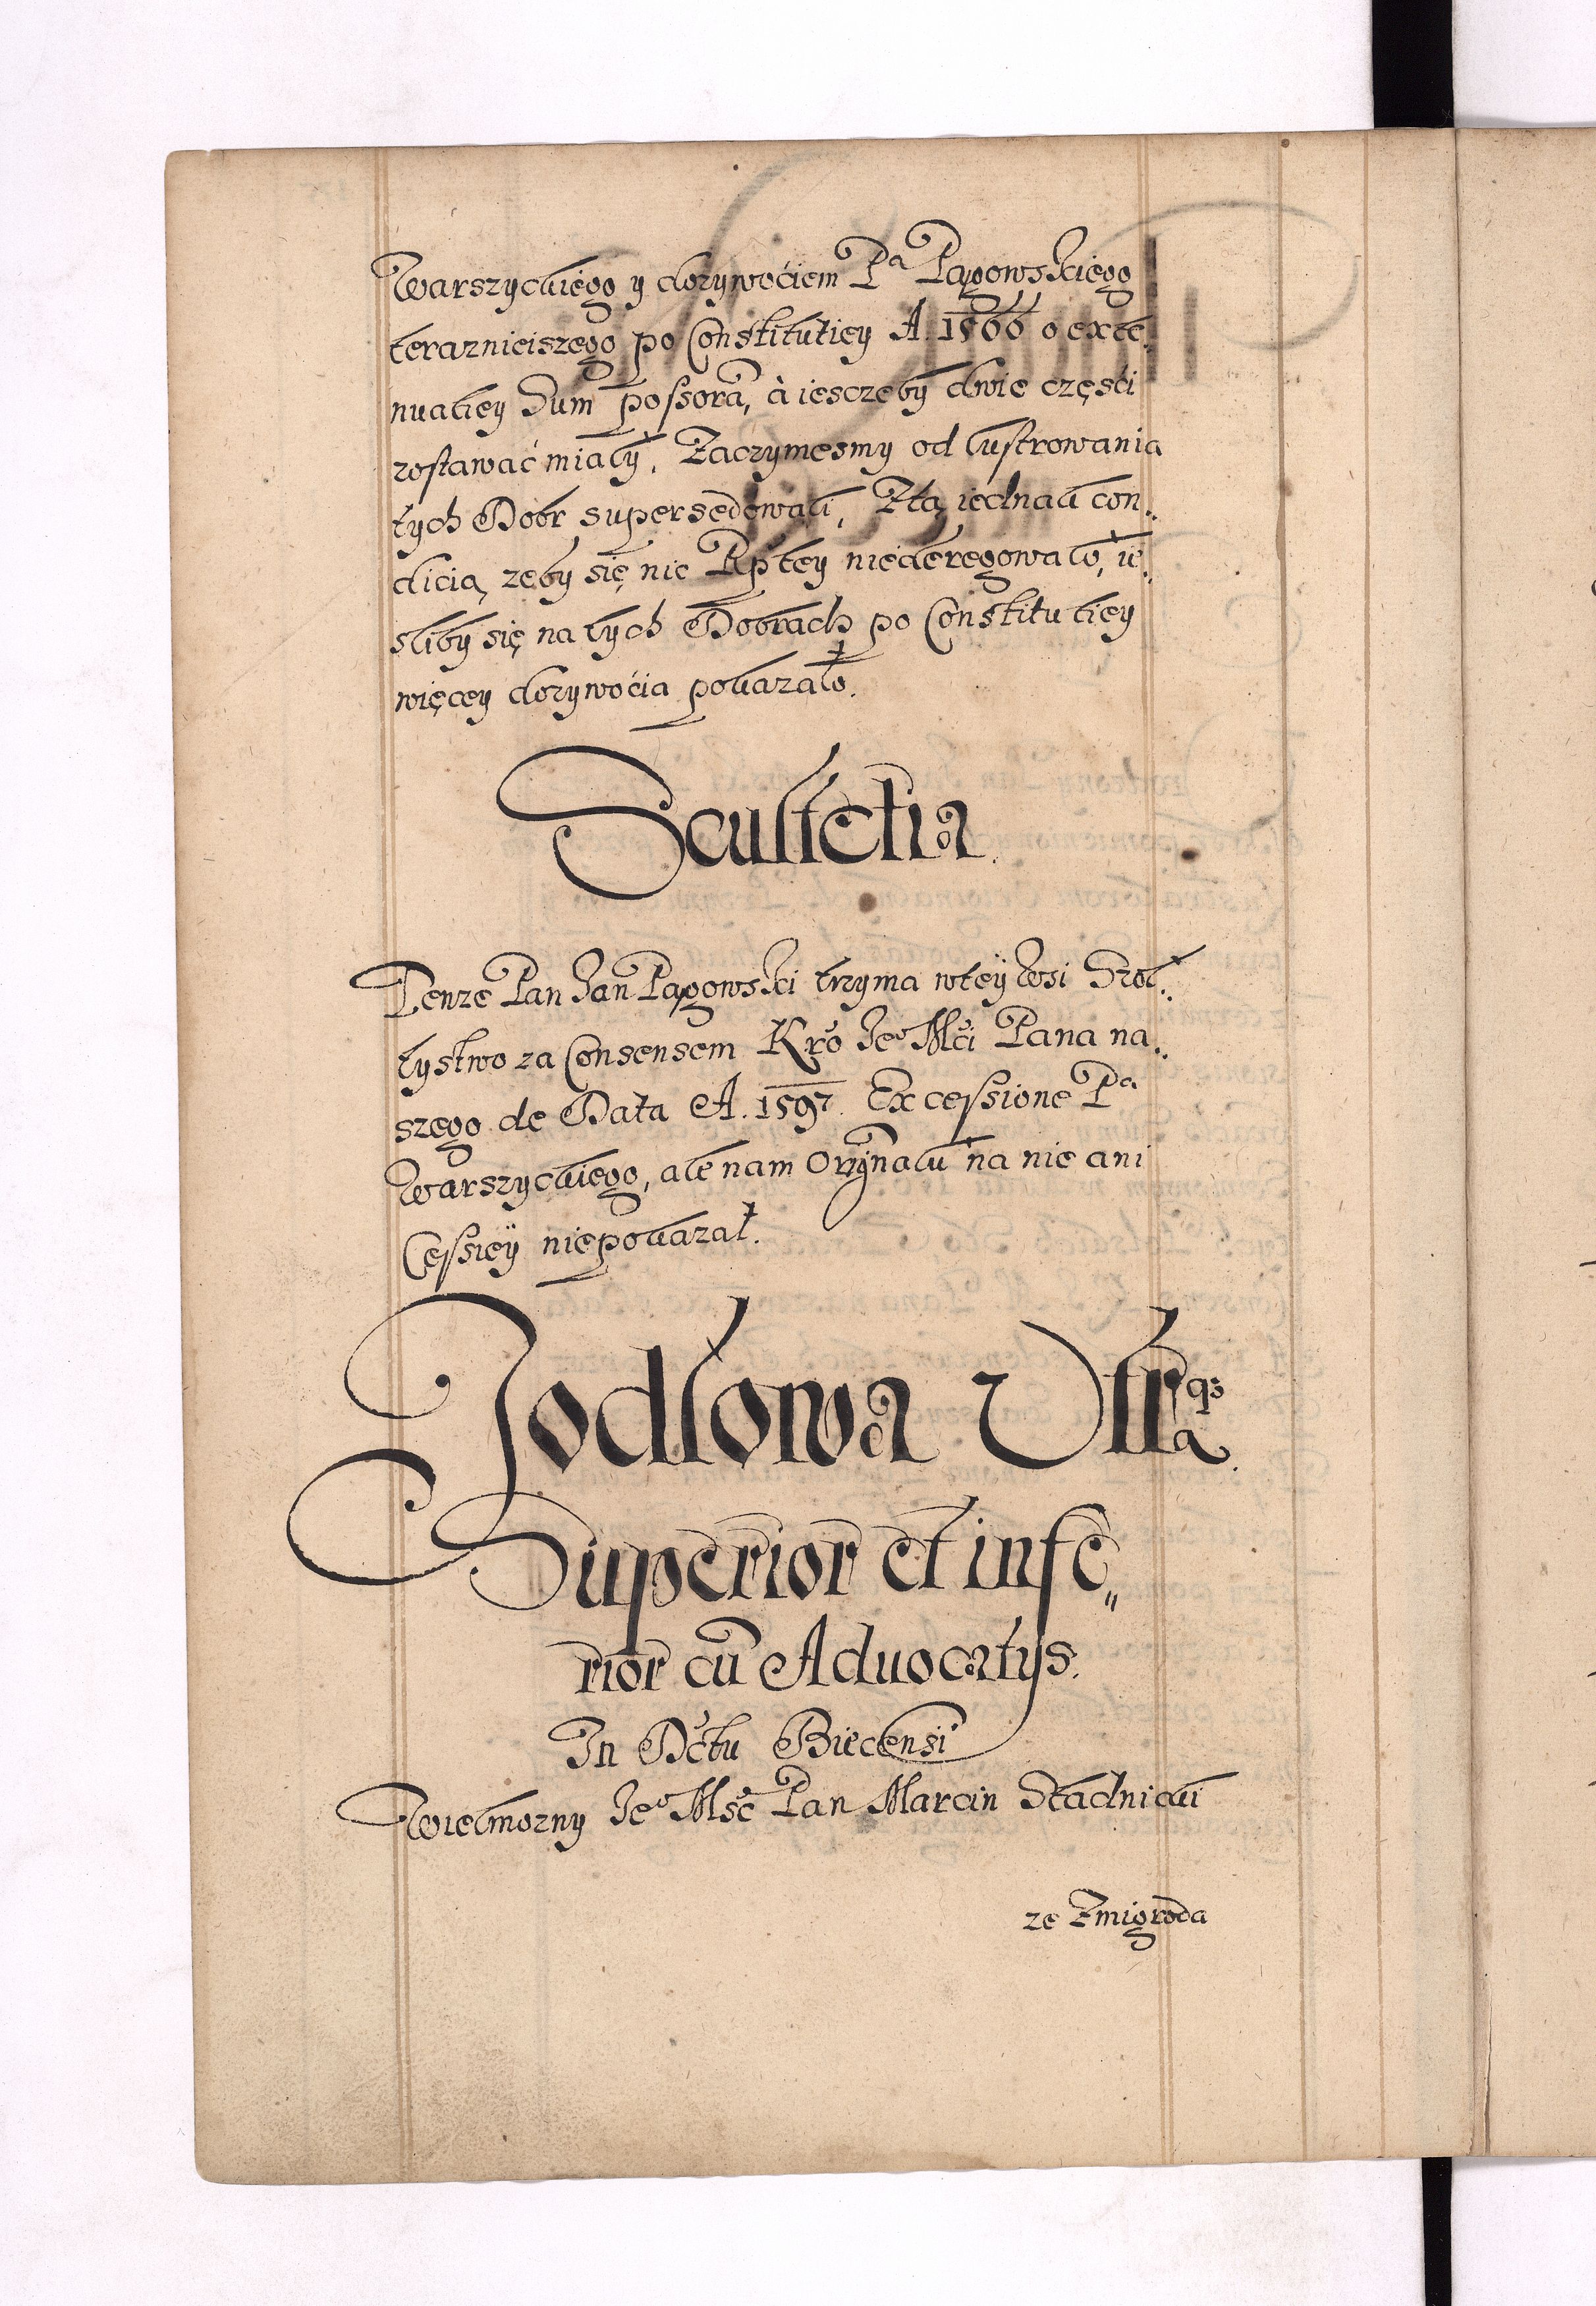 Warszyckiego y dozywociem Pa Pągowskiego
teraznieiszego po Constitutiey A. 1566 o exte„
nuatiey Sum̃ possorã, à iesczeby dwie części
zostawać miały. Zaczymesmy od lustrowania
tych Dobr supersedowali, Ztą iednak con„
dicią, zeby się nic Rptey niederegowało, ie„
sliby się na tych Dobrach po Constitutiey
więcey dozywocia pokazało.
Scultetia.
Tenze Pan Jan Pągowski trzyma wtey Wsi Szoł„
tystwo za Consensem Kro Jeo Mci Pana na„
szego de Data A. 1597. Ex cessione Pa
Warszyckiego, ale nam Orygnału na nie ani
Cessiey niepokazał.
Jodłowa Utraq3
Superior et infe„
rior cũ Aduocatys.
In Dctu Biecensi
Wielmozny Jeo Msc Pan Marcin Stadnicki
ze Zmigroda